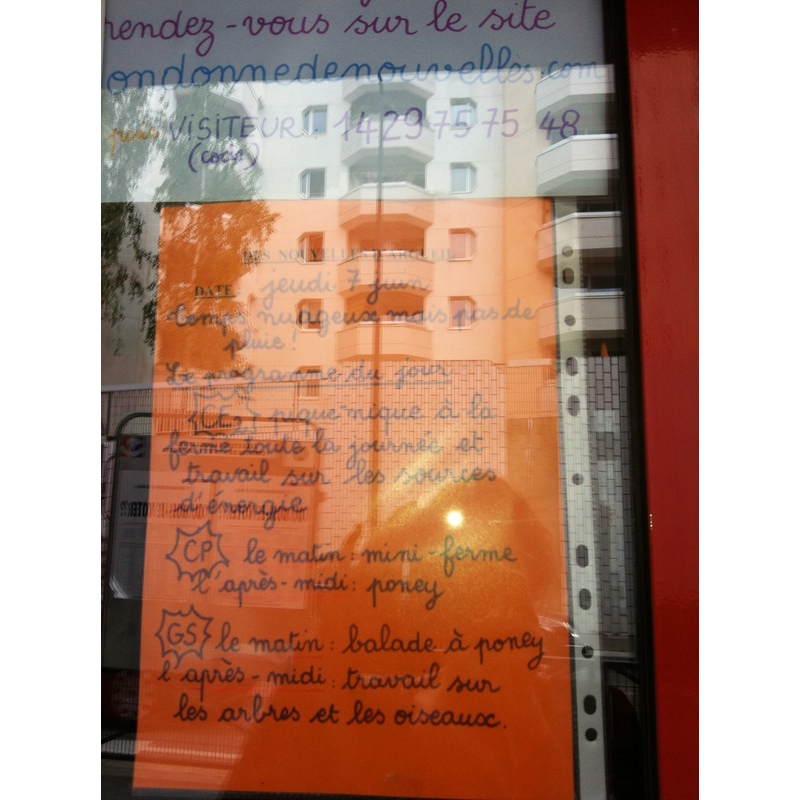 rendez-vous sur le site
ondonnedenouvelles.com
pour VISITEUR : 1429 75 75 48
(code)
DES NOUVELLES D'ARGUEIL
DATE jeudi 7 juin
temps nuageux mais pas de
pluie !
Le programme du jour
CE2 pique-nique à la
ferme toute la journée et
travail sur les sources
d'énergie
CP le matin : mini-ferme
l'après-midi : poney
GS le matin : balade à poney
l'après-midi : travail sur
les arbres et les oiseaux.